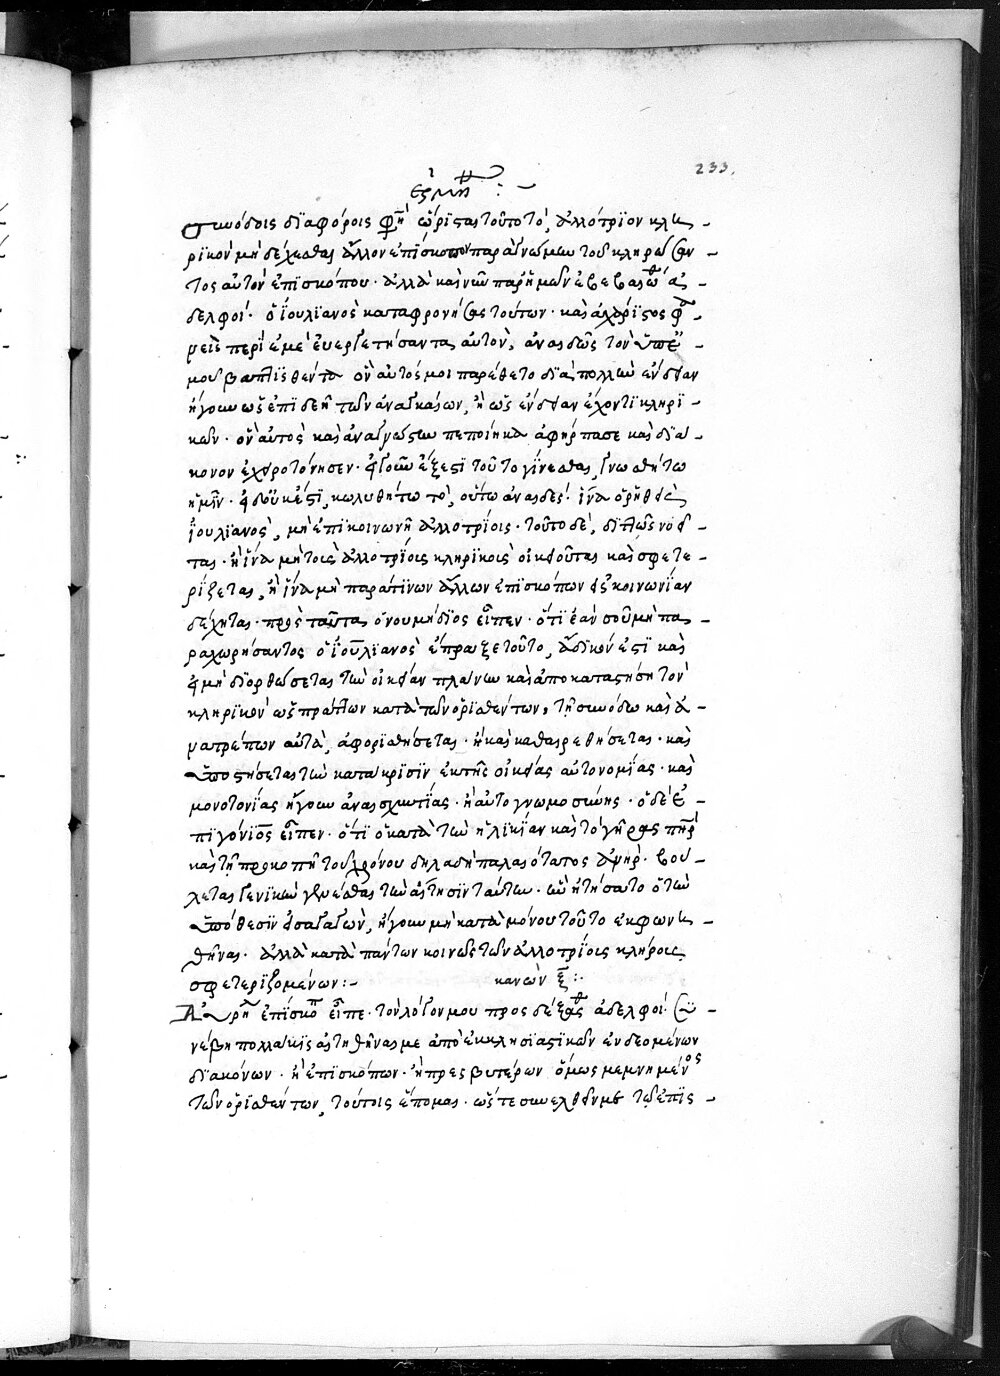 233.
ἑρμη :~
συνόδοις διαφόροις φησὶ ὥρισται τοῦτο τό, ἀλλότριον κλη-
ρικὸν μὴ δέχεσθαι ἄλλον ἐπίσκοπον παρὰ γνώμην τοῦ κληρώσαν-
τος αὐτὸν ἐπισκόπου· ἀλλὰ καὶ νῦν παρ' ἡμῶν ἐβεβαιώθη ἀ-
δελφοί· ὁ ἰουλιανὸς καταφρονήσας τούτων· καὶ ἀχάριστος φα-
νεὶς περὶ ἐμὲ εὐεργετήσαντα αὐτόν, ἀναιδῶς τὸν ὑπ' ἐ-
μοῦ βαπτισθέντα ὃν αὐτός μοι παρέθετο διὰ πολλὴν ἔνδειαν
ἤγουν ὡς ἐπιδεῆ τῶν ἀναγκαίων, ἢ ὡς ἔνδειαν ἔχοντι κληρι-
κῶν· ὃν αὐτὸς καὶ ἀναγνώστην πεποίηκα ἀφήρπασε καὶ διά-
κονον ἐχειροτόνησεν· εἰ οὖν ἔξεστι τοῦτο γίνεσθαι, γνωσθήτω
ἡμῖν· εἰ δὲ οὐκ ἔστι, κωλυθήτω τὸ, οὕτω ἀναιδές· ἵνα ὁρηθεὶς
ἰουλιανὸς, μὴ ἐπικοινωνῇ ἀλλοτρίοις· τοῦτο δὲ, διπλῶς νοεῖ-
ται· ἢ ἵνα μὴ τοὺς ἀλλοτρίοις κληρικοὺς οἰκειοῦται καὶ σφετε-
ρίζεται, ἢ ἵνα μὴ παρά τινων ἄλλων ἐπισκόπων εἰς κοινωνίαν
δέχηται· πρὸς ταῦτα ὁ νουμήδιος εἶπεν· ὅτι ἐὰν σοῦ μὴ πα-
ραχωρήσαντος ὁ ἰουλιανὸς ἔπραξε τοῦτο, ἄδικόν ἐστι καὶ
εἰ μὴ διορθώσεται τὴν οἰκείαν πλάνην καὶ ἀποκαταστήσῃ τὸν
κληρικὸν ὡς πράττων κατὰ τῶν ὁρισθέντων, τῇ συνόδω καὶ ἀ-
νατρέπων αὐτὰ, ἀφορισθήσεται· ἢ καὶ καθαιρεθήσεται· καὶ
ὑποστήσεται τὴν κατάκρισιν ἐκ τῆς οἰκείας αὐτονομίας· καὶ
μονοτονίας ἤγουν ἀναισχυντίας· ἢ αὐτογνωμοσύνης· ὁ δὲ ἐ-
πιγόνιος εἶπεν· ὅτι ὁ κατὰ τὴν ἡλικίαν καὶ τὸ γῆρας πατὴρ
καὶ τῇ προκοπῇ τοῦ χρόνου δηλαδὴ παλαιότατος ἀνήρ· βού-
λεται γενικὴν γενέσθαι τὴν αἴτησιν ταύτην· ἣν ᾐτήσατο ὁ τὴν
ὑπόθεσιν εἰσαγαγών, ἤγουν μὴ κατὰ μόνου τοῦτο ἐκφωνη-
θῆναι· ἀλλὰ κατὰ πάντων κοινῶς τῶν ἀλλοτρίοις κλήροις
σφετεριζομένων:~ κανὼν ξ:·
Αὐρήλιος ἐπίσκοπος εἶπε· τὸν λόγον μου προσδέξασθε ἀδελφοί· Συ-
νέβη πολλάκις αἰτηθῆναί με ἀπὸ ἐκκλησιαστικῶν ἐνδεομένων
διακόνων· ἢ ἐπισκόπων· ἢ πρεσβυτέρων ὅμως μεμνημένος
τῶν ὁρισθέντων, τούτοις ἕπομαι· ὥστε συνελθεῖν με τῷ ἐπισ-